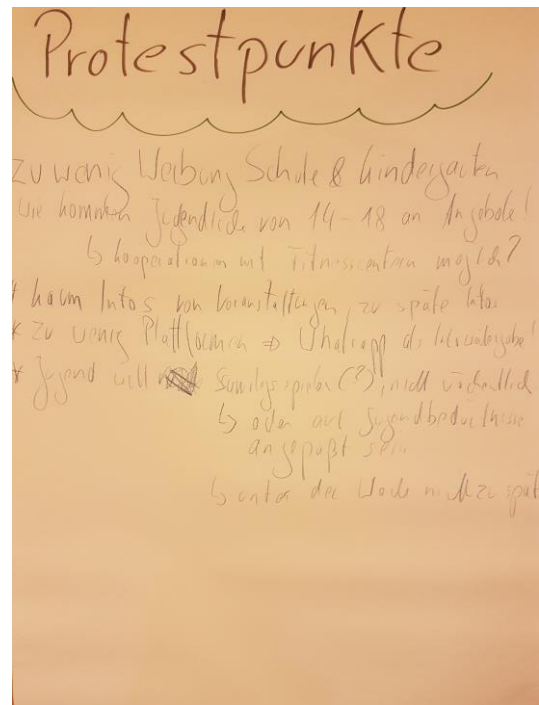 Protestpunkte
zu wenig Werbung Schule & Kindergarten
wie kommen Jugendliche von 14-18 an Angebote!
↳ Kooperationen mit Fitnesscentern möglich?
* kaum Infos von Veranstaltungen, zu späte Infos
* zu wenig Plattformen ⇒ Whatsapp als
* Jugend will spielen (?), nicht wöchentlich
↳ oder auf Jugendbedürfnisse
angepaßt sein
↳ unter der Woche nicht zu spät